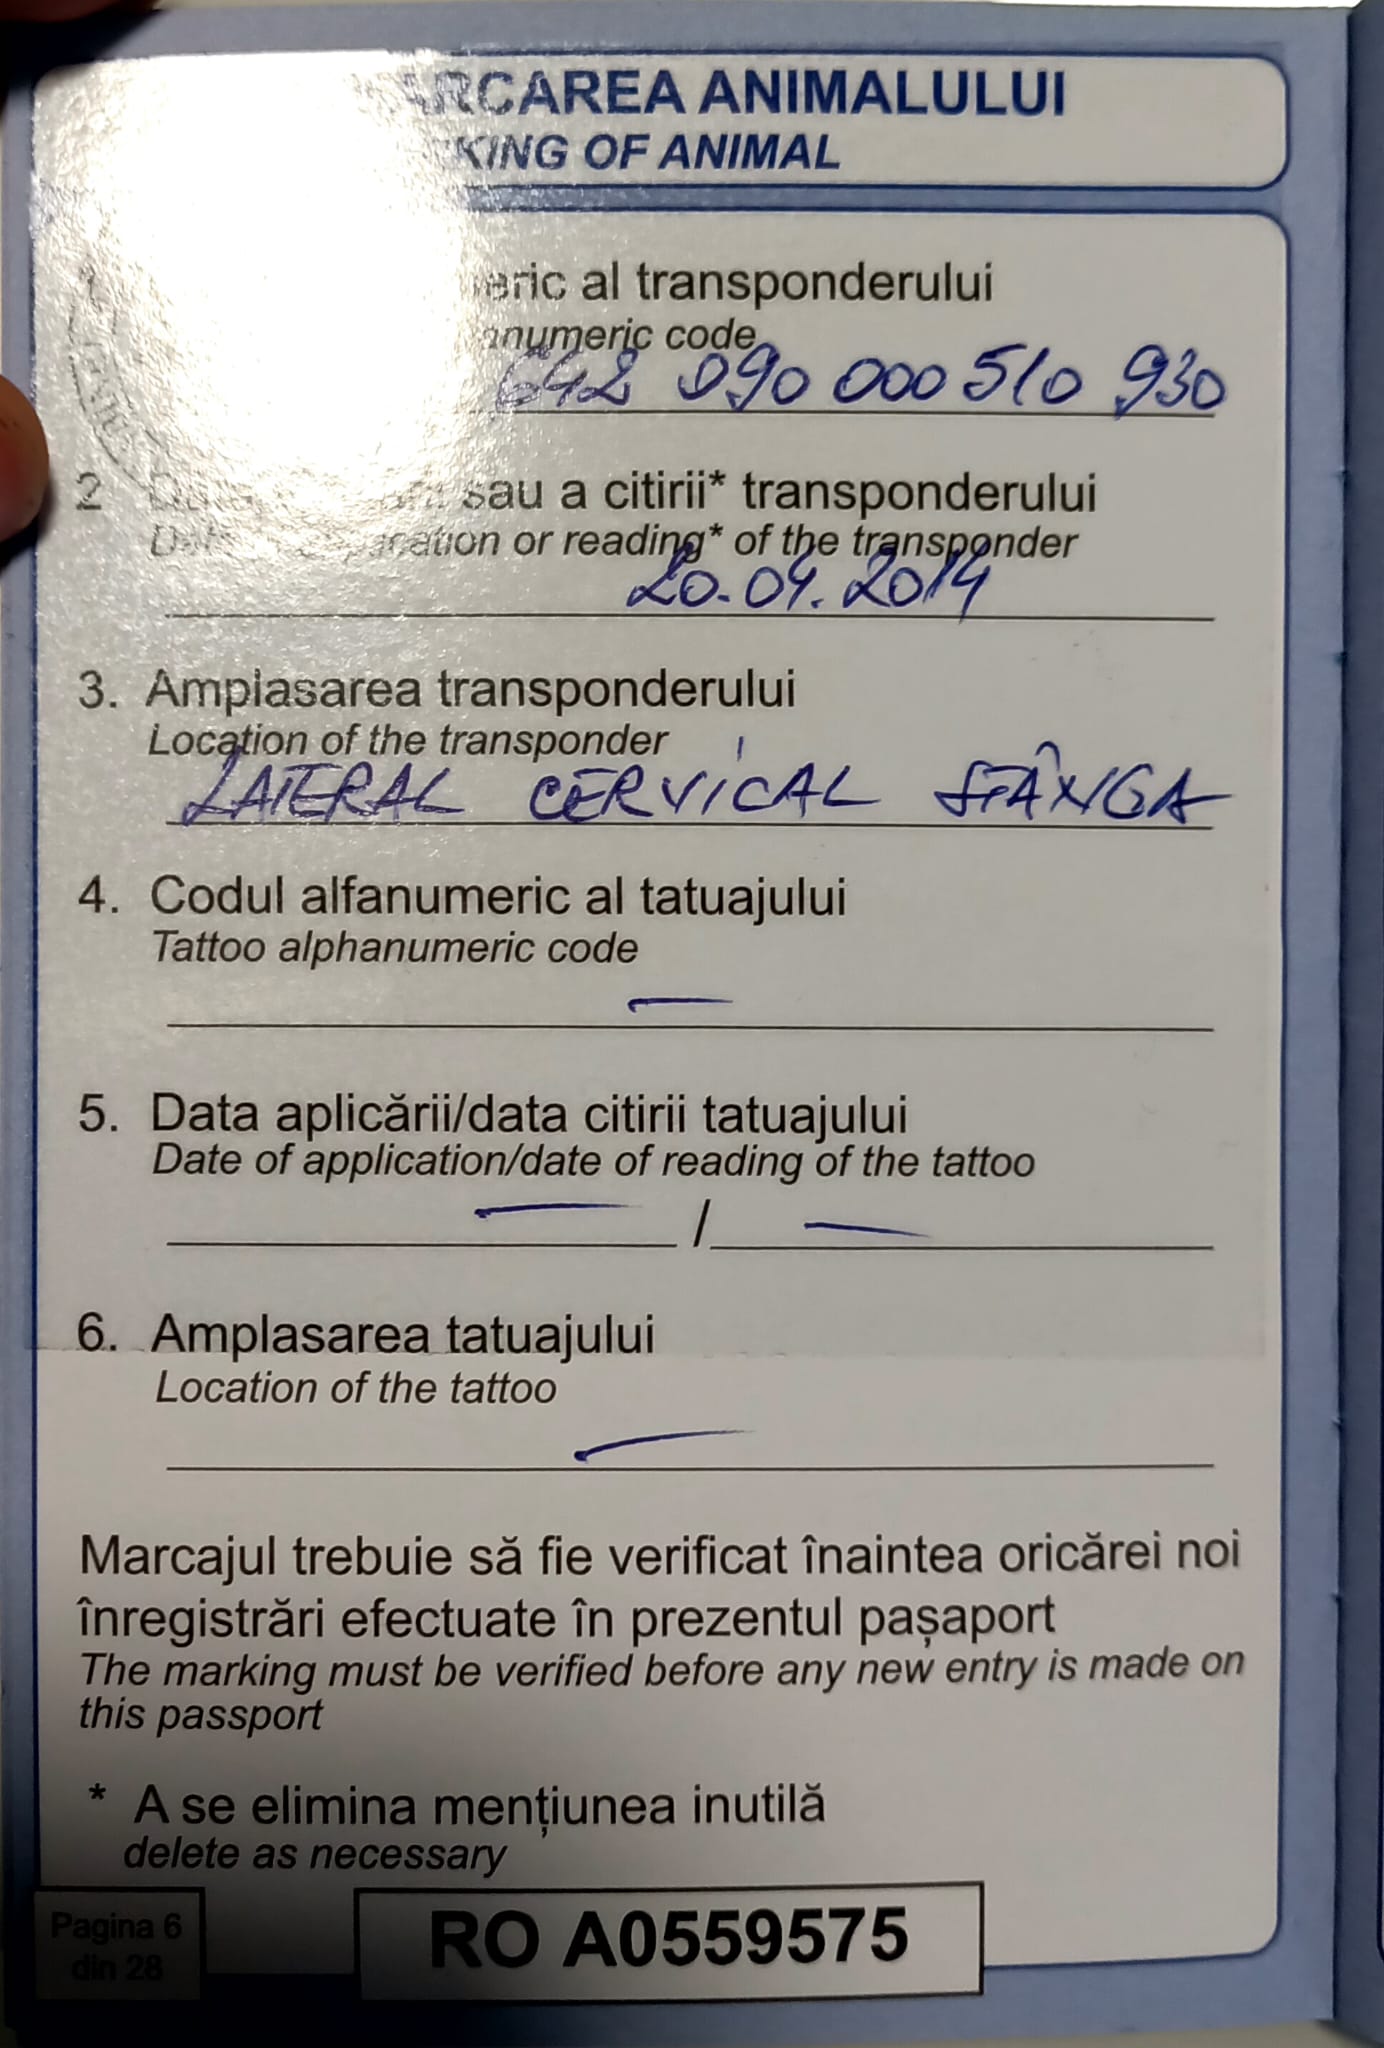 ARCAREA ANIMALULUI
KING OF ANIMAL
eric al transponderului
anumeric code
642 090 000 510 930
2 sau a citirii* transponderului
Date or reading* of the transponder
20.04.2014
3. Amplasarea transponderului
Location of the transponder
LATERAL CERVICAL STÂNGA
4. Codul alfanumeric al tatuajului
Tattoo alphanumeric code
—
5. Data aplicării/data citirii tatuajului
Date of application/date of reading of the tattoo
— / —
6. Amplasarea tatuajului
Location of the tattoo
—
Marcajul trebuie să fie verificat înaintea oricărei noi
înregistrări efectuate în prezentul pașaport
The marking must be verified before any new entry is made on
this passport
* A se elimina mențiunea inutilă
delete as necessary
Pagina 6
din 28
RO A0559575